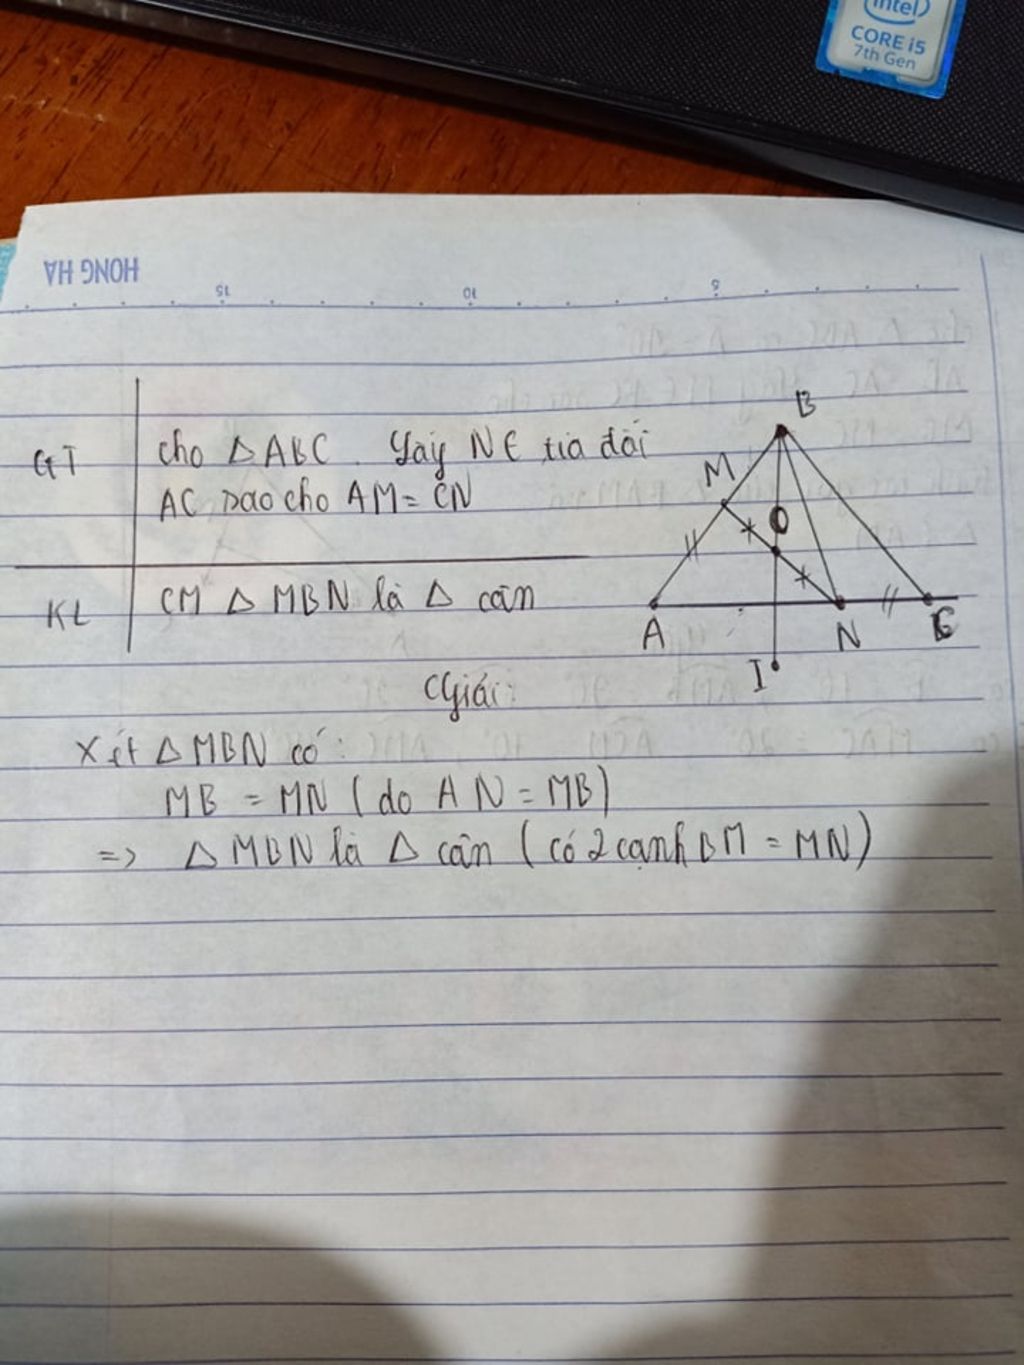 intel
CORE i5
7th Gen
HONG HA
15
10
5
GT
cho △ABC. Lấy N∈ tia đối
AC sao cho AM = CN
KL
CM △ MBN là △ cân
B
M
O
A
N
C
I
Giải:
Xét △MBN có:
MB = MN (do AN = MB)
=> △ MBN là △ cân (có 2 cạnh BM = MN)